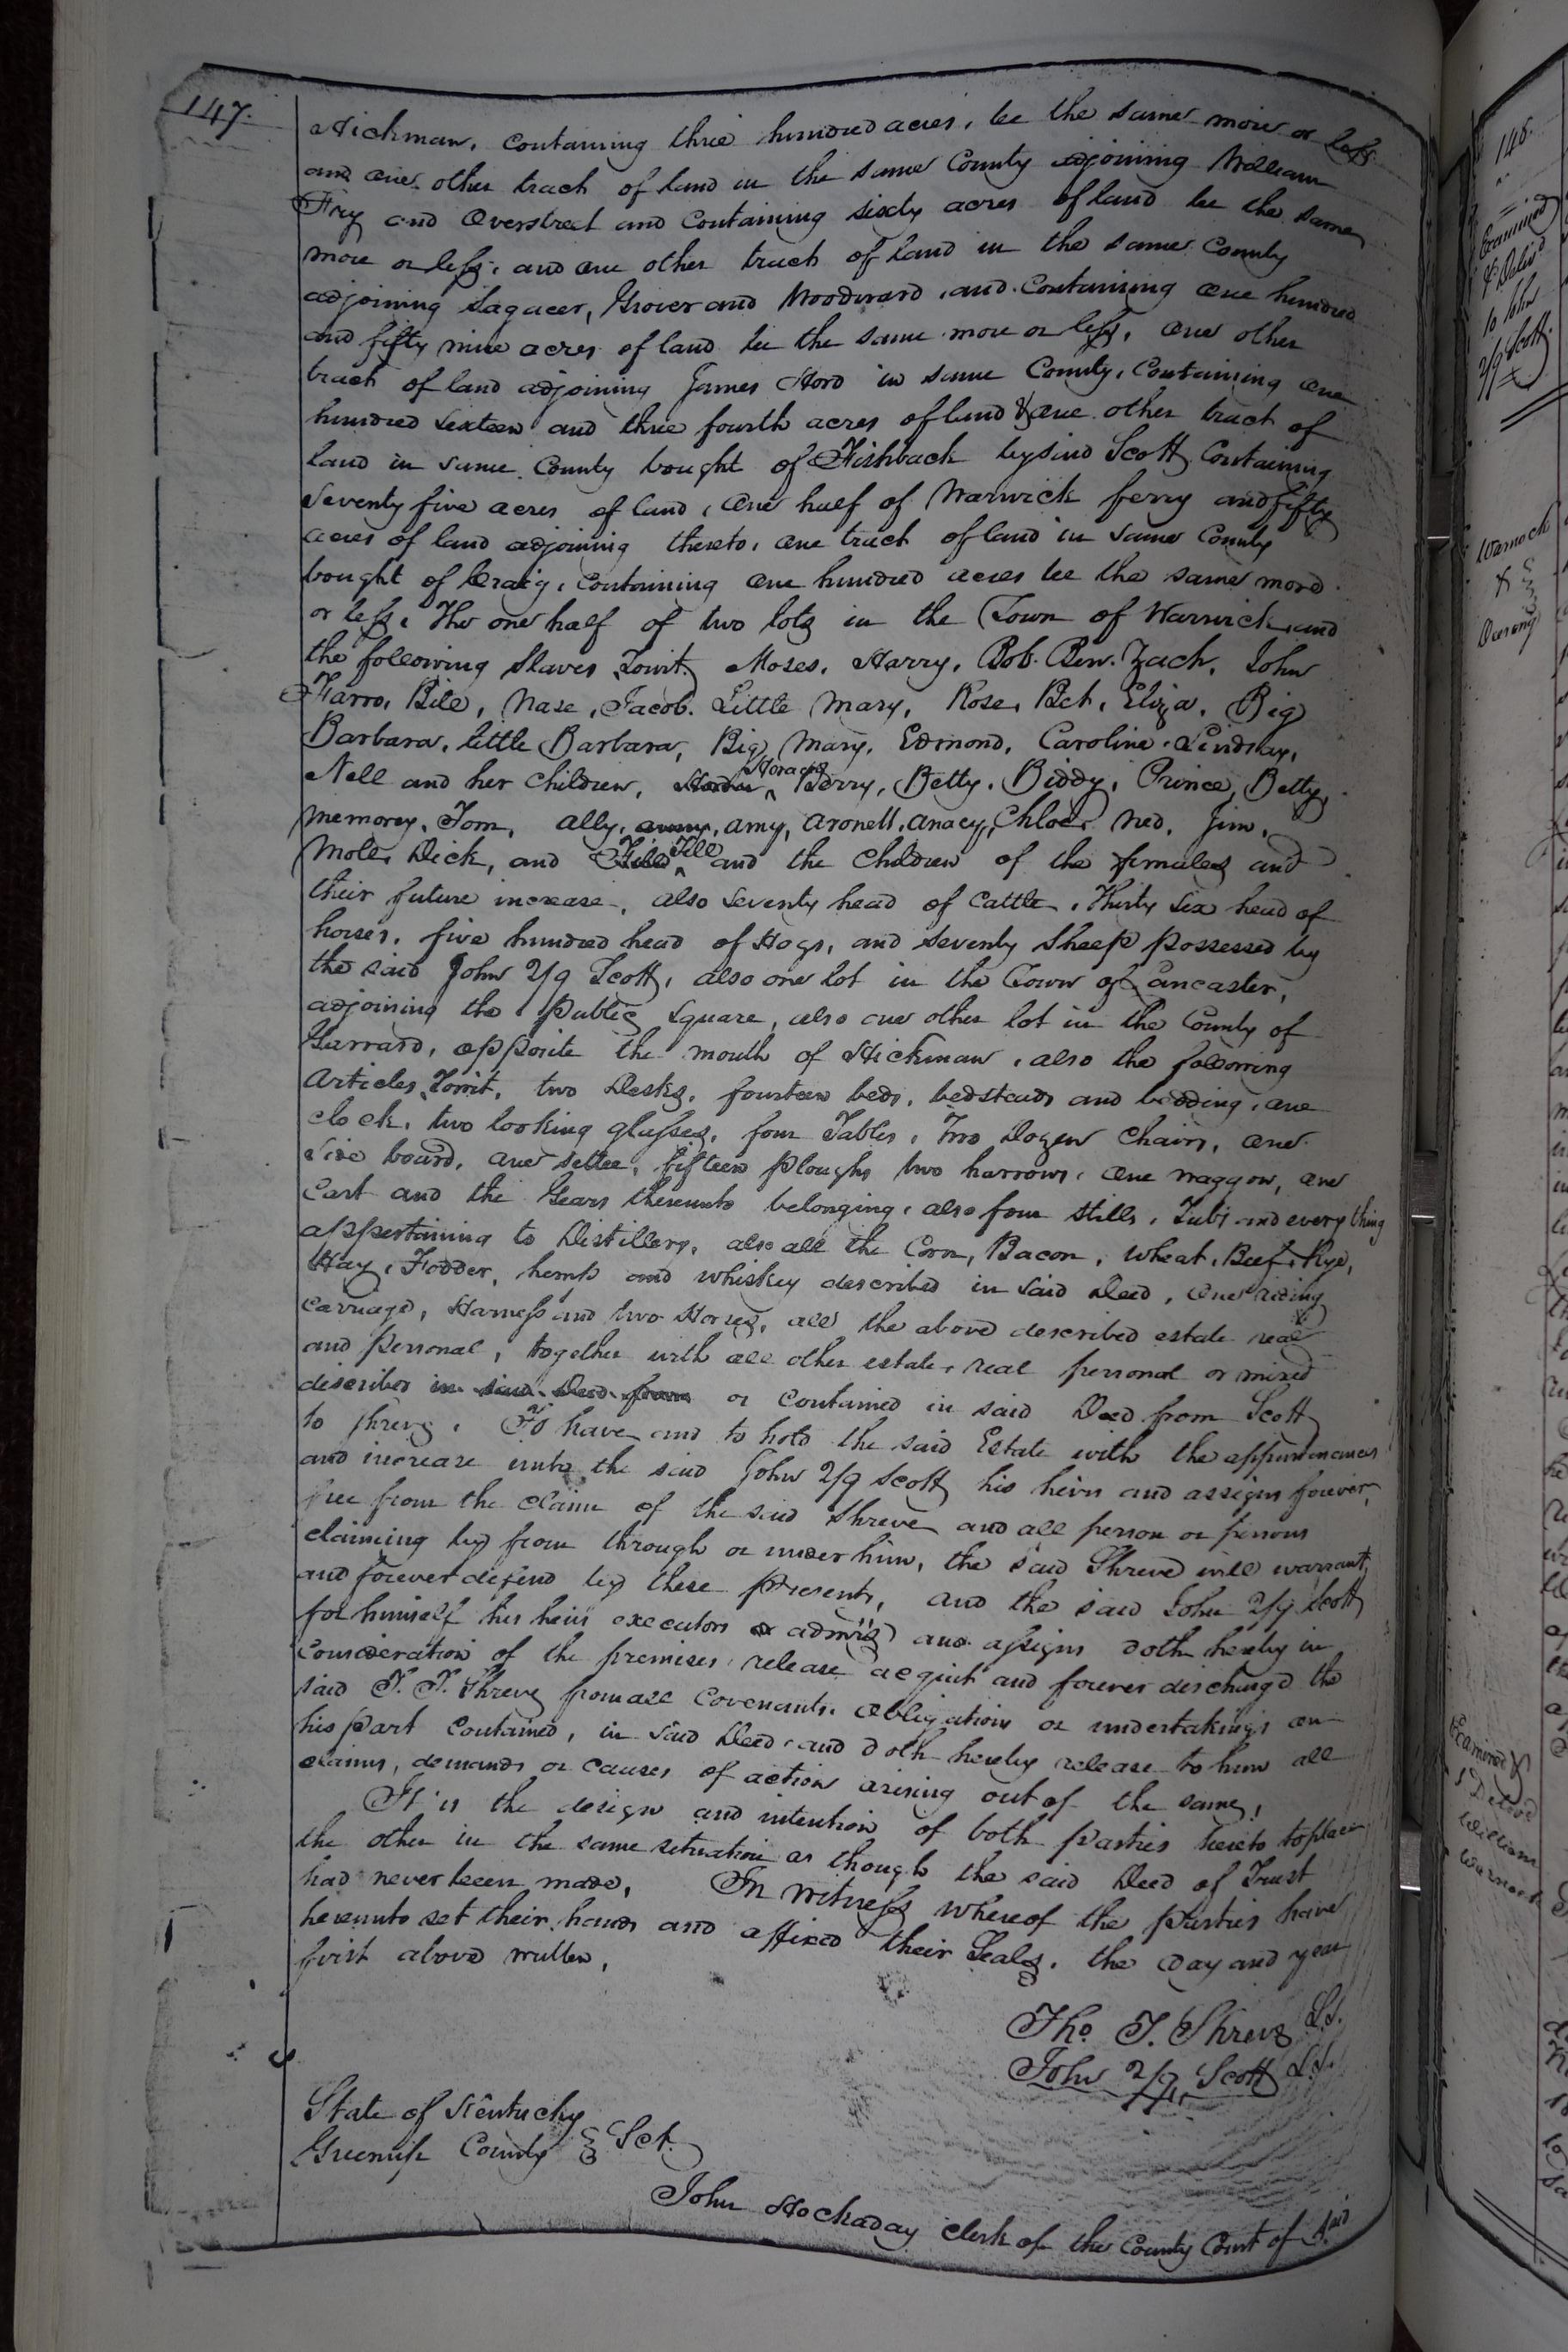 147.
Hickman, containing three hundred acres, be the same more or less
and one other tract of land in the same County adjoining William
Fry and Overstreet and Containing sixty acres of land be the same
more or less, and one other tract of land in the same County
adjoining Sagacer, Grover and Woodward, and Containing One hundred
and fifty nine acres of land be the same more or less, One other
tract of land adjoining James Hord in same County, Containing One
hundred sixteen and three fourth acres of land & One other tract of
land in same County bought of Fishback by said Scott, Containing
Seventy five acres of land, One half of Warwick ferry and fifty
acres of land adjoining thereto, One tract of land in same County
bought of Craig, Containing One hundred acres be the same more
or less, The one half of two lots in the Town of Warwick, and
the following Slaves Towit, Moses, Harry, Bob. Ben. Zach, John
Farro, Bill, Nase, Jacob. Little Mary, Rose, Bet, Eliza, Big
Barbara, little Barbara, Big Mary, Edmond, Caroline, Lindsay,
Nell and her Children, Horace Berry, Betty, Biddy, Prince, Betty,
Memorey, Tom, Ally, Amy, Aronell, Anacy, Chloe, Ned, Jim,
Moll, Dick, and Till and the Children of the females and
their future increase, also Seventy head of Cattle, Thirty Six head of
horses, five hundred head of Hogs, and Seventy Sheep possessed by
the said John Scott, also one lot in the Town of Lancaster,
adjoining the Public Square, also one other lot in the County of
Garrard, opposite the mouth of Hickman, also the following
Articles Towit, two Desks, fourteen beds, bedsteads and bedding, one
clock, two looking glasses, four Tables, Two Dozen Chairs, one
Side board, one settee, fifteen Ploughs two harrows, One waggon, one
Cart and the Gears thereunto belonging, also four Stills, Tubs and every thing
appertaining to Distillery, also all the Corn, Bacon, Wheat, Beef, Rye,
Hay, Fodder, hemp and whiskey described in Said Deed, One riding
Carriage, Harness and two Horses, all the above described estate real
and personal, together with all other estate, real personal or mixed
described in said Deed from or contained in said Deed from Scott
to Shreve. To have and to hold the said Estate with the appurtenances
and increase unto the said John Scott his heirs and assigns forever,
free from the claim of the said Shreve and all person or persons
claiming by from through or under him, the said Shreve will warrant
and forever defend by these Presents, and the said John Scott
for himself his heirs executors admrs and assigns doth hereby in
Consideration of the premises release acquit and forever discharge the
said T. T. Shreve from all Covenants, Obligations or undertakings on
his part contained, in said Deed, and doth hereby release to him all
claims, demands or causes of action arising out of the same,
It is the design and intention of both parties hereto to place
the other in the same situation as though the said Deed of Trust
had never been made, In Witness Whereof the parties have
hereunto set their hands and affixed their Seals, the day and year
first above written,
Tho. T. Shreve L.S.
John Scott L.S.
State of Kentucky
Greenup County Sct.
John Hockaday Clerk of the County Court of said
148.
Examined
& Deliv'd
to John
Scott
Warnock
&
Examined &
Deliv'd
William
Warnock